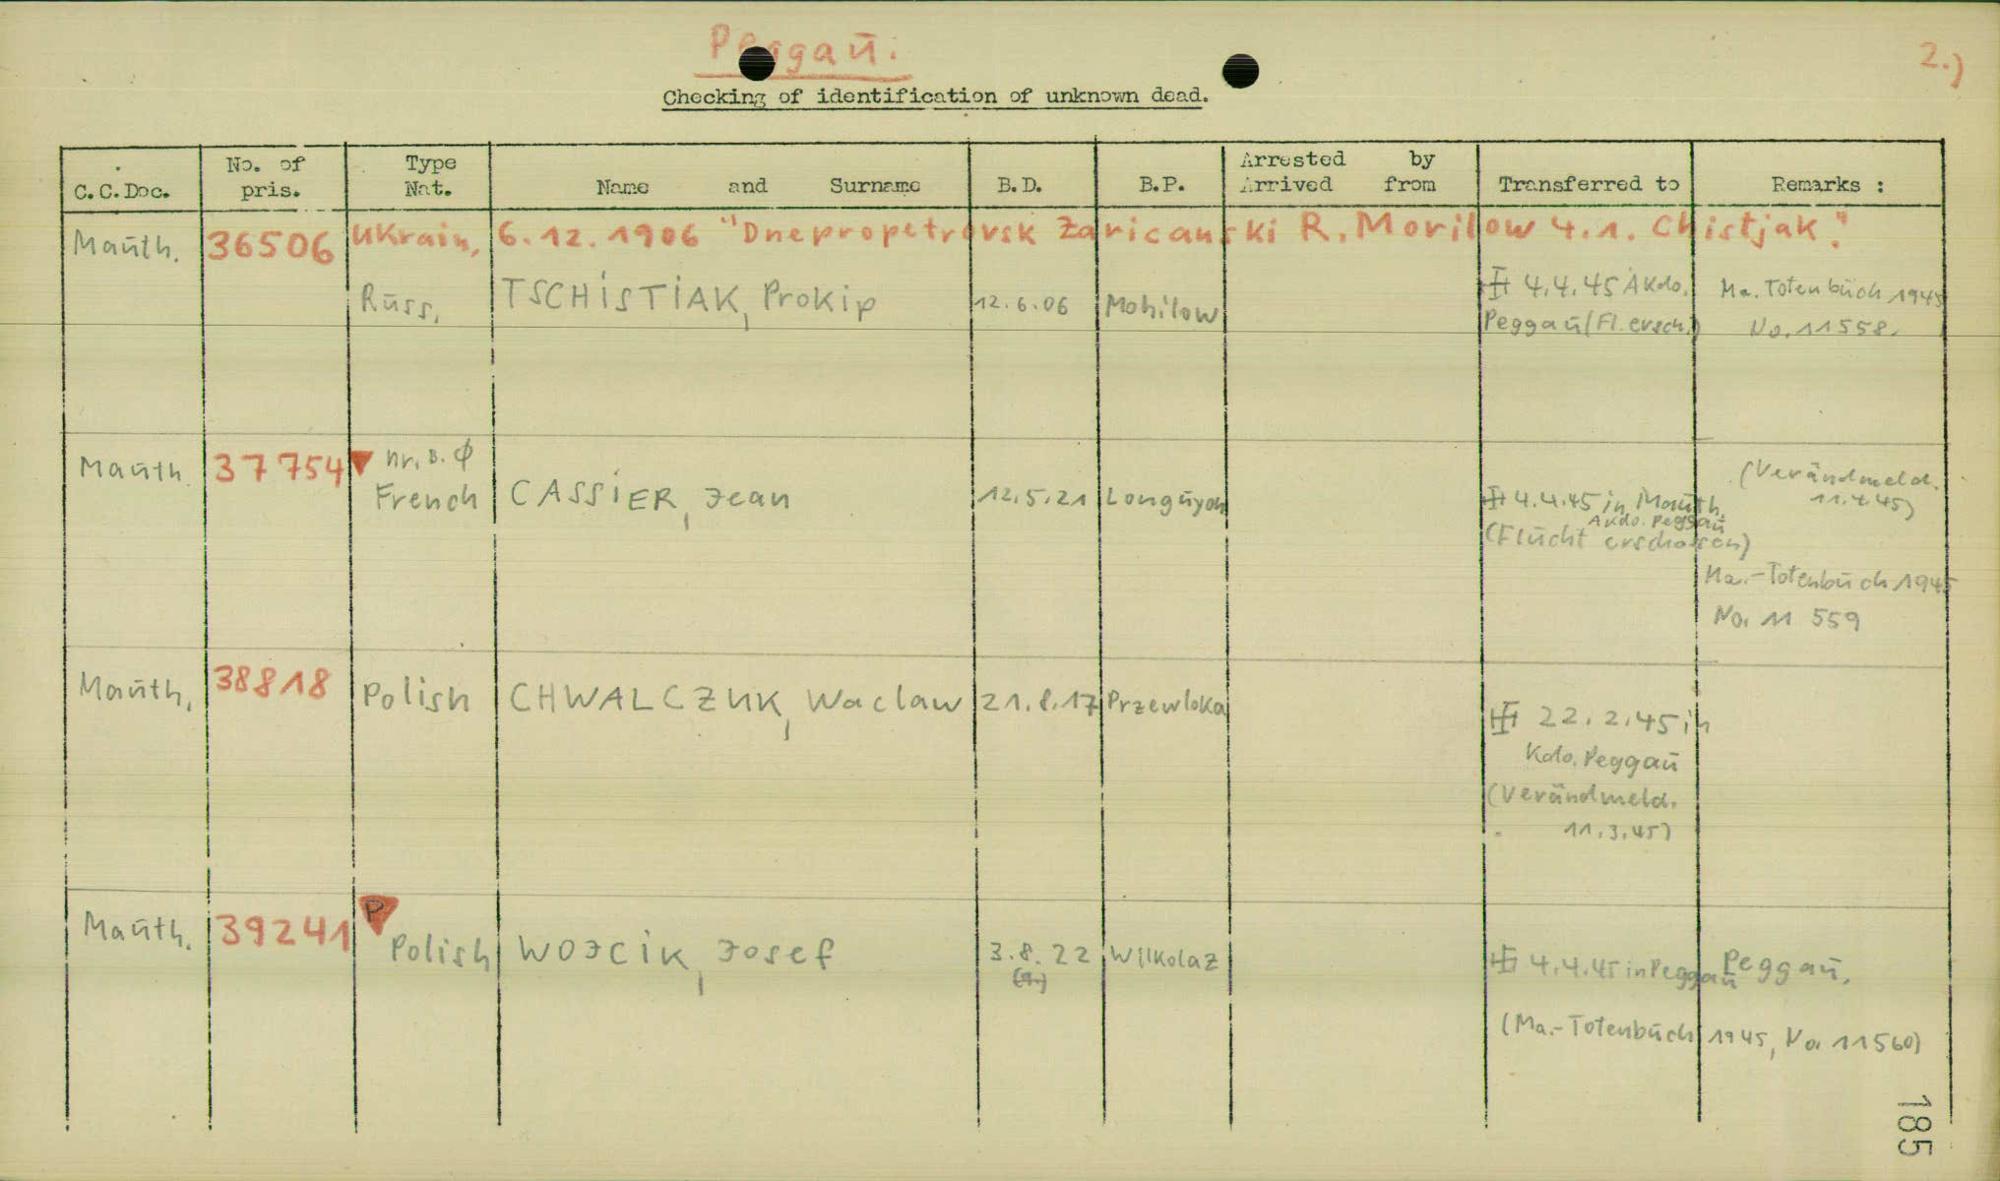 Peggaŭ.
2.)
Checking of identification of unknown dead.
C.C.Doc. No. of pris. Type Nat. Name and Surname B.D. B.P. Arrested by Arrived from Transferred to Remarks :
Maŭth. 36506 Ukrain, 6.12.1906 "Dnepropetrovsk Zaricanski R. Morilow 4.1. Chistjak."
Rŭss, TSCHISTIAK, Prokip 12.6.06 Mohilow 4.4.45 AKdo. Ma. Totenbŭch 1945
Peggaŭ (Fl. ersch.) No. 11558.
Maŭth. 37754 nr. B. ф
French CASSIER, Jean 12.5.21 Longŭyon 4.4.45 in Maŭth. (Verändmeld. 11.4.45)
AKdo. Peggaŭ
(Flŭcht erschossen)
Ma.-Totenbŭch 1945
No. 11 559
Maŭth. 38818 Polish CHWALCZUK, Waclaw 21.8.17 Przewloka 22.2.45 in
Kdo. Peggaŭ
(Verändmeld.
11.3.45)
Maŭth. 39241 P
Polish WOJCIK, Josef 3.8.22 Wilkolaz 4.4.45 in Peggaŭ Peggaŭ.
(9.)
(Ma.-Totenbŭch 1945, No. 11560)
185